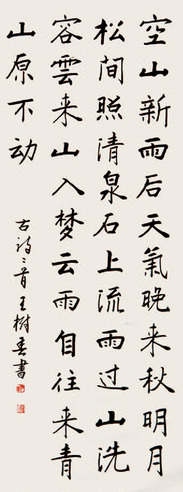 空山新雨后天氣晚来秋明月
松间照清泉石上流雨过山洗
容雲来山入梦云雨自往来青
山原不动
古诗二首王树春書